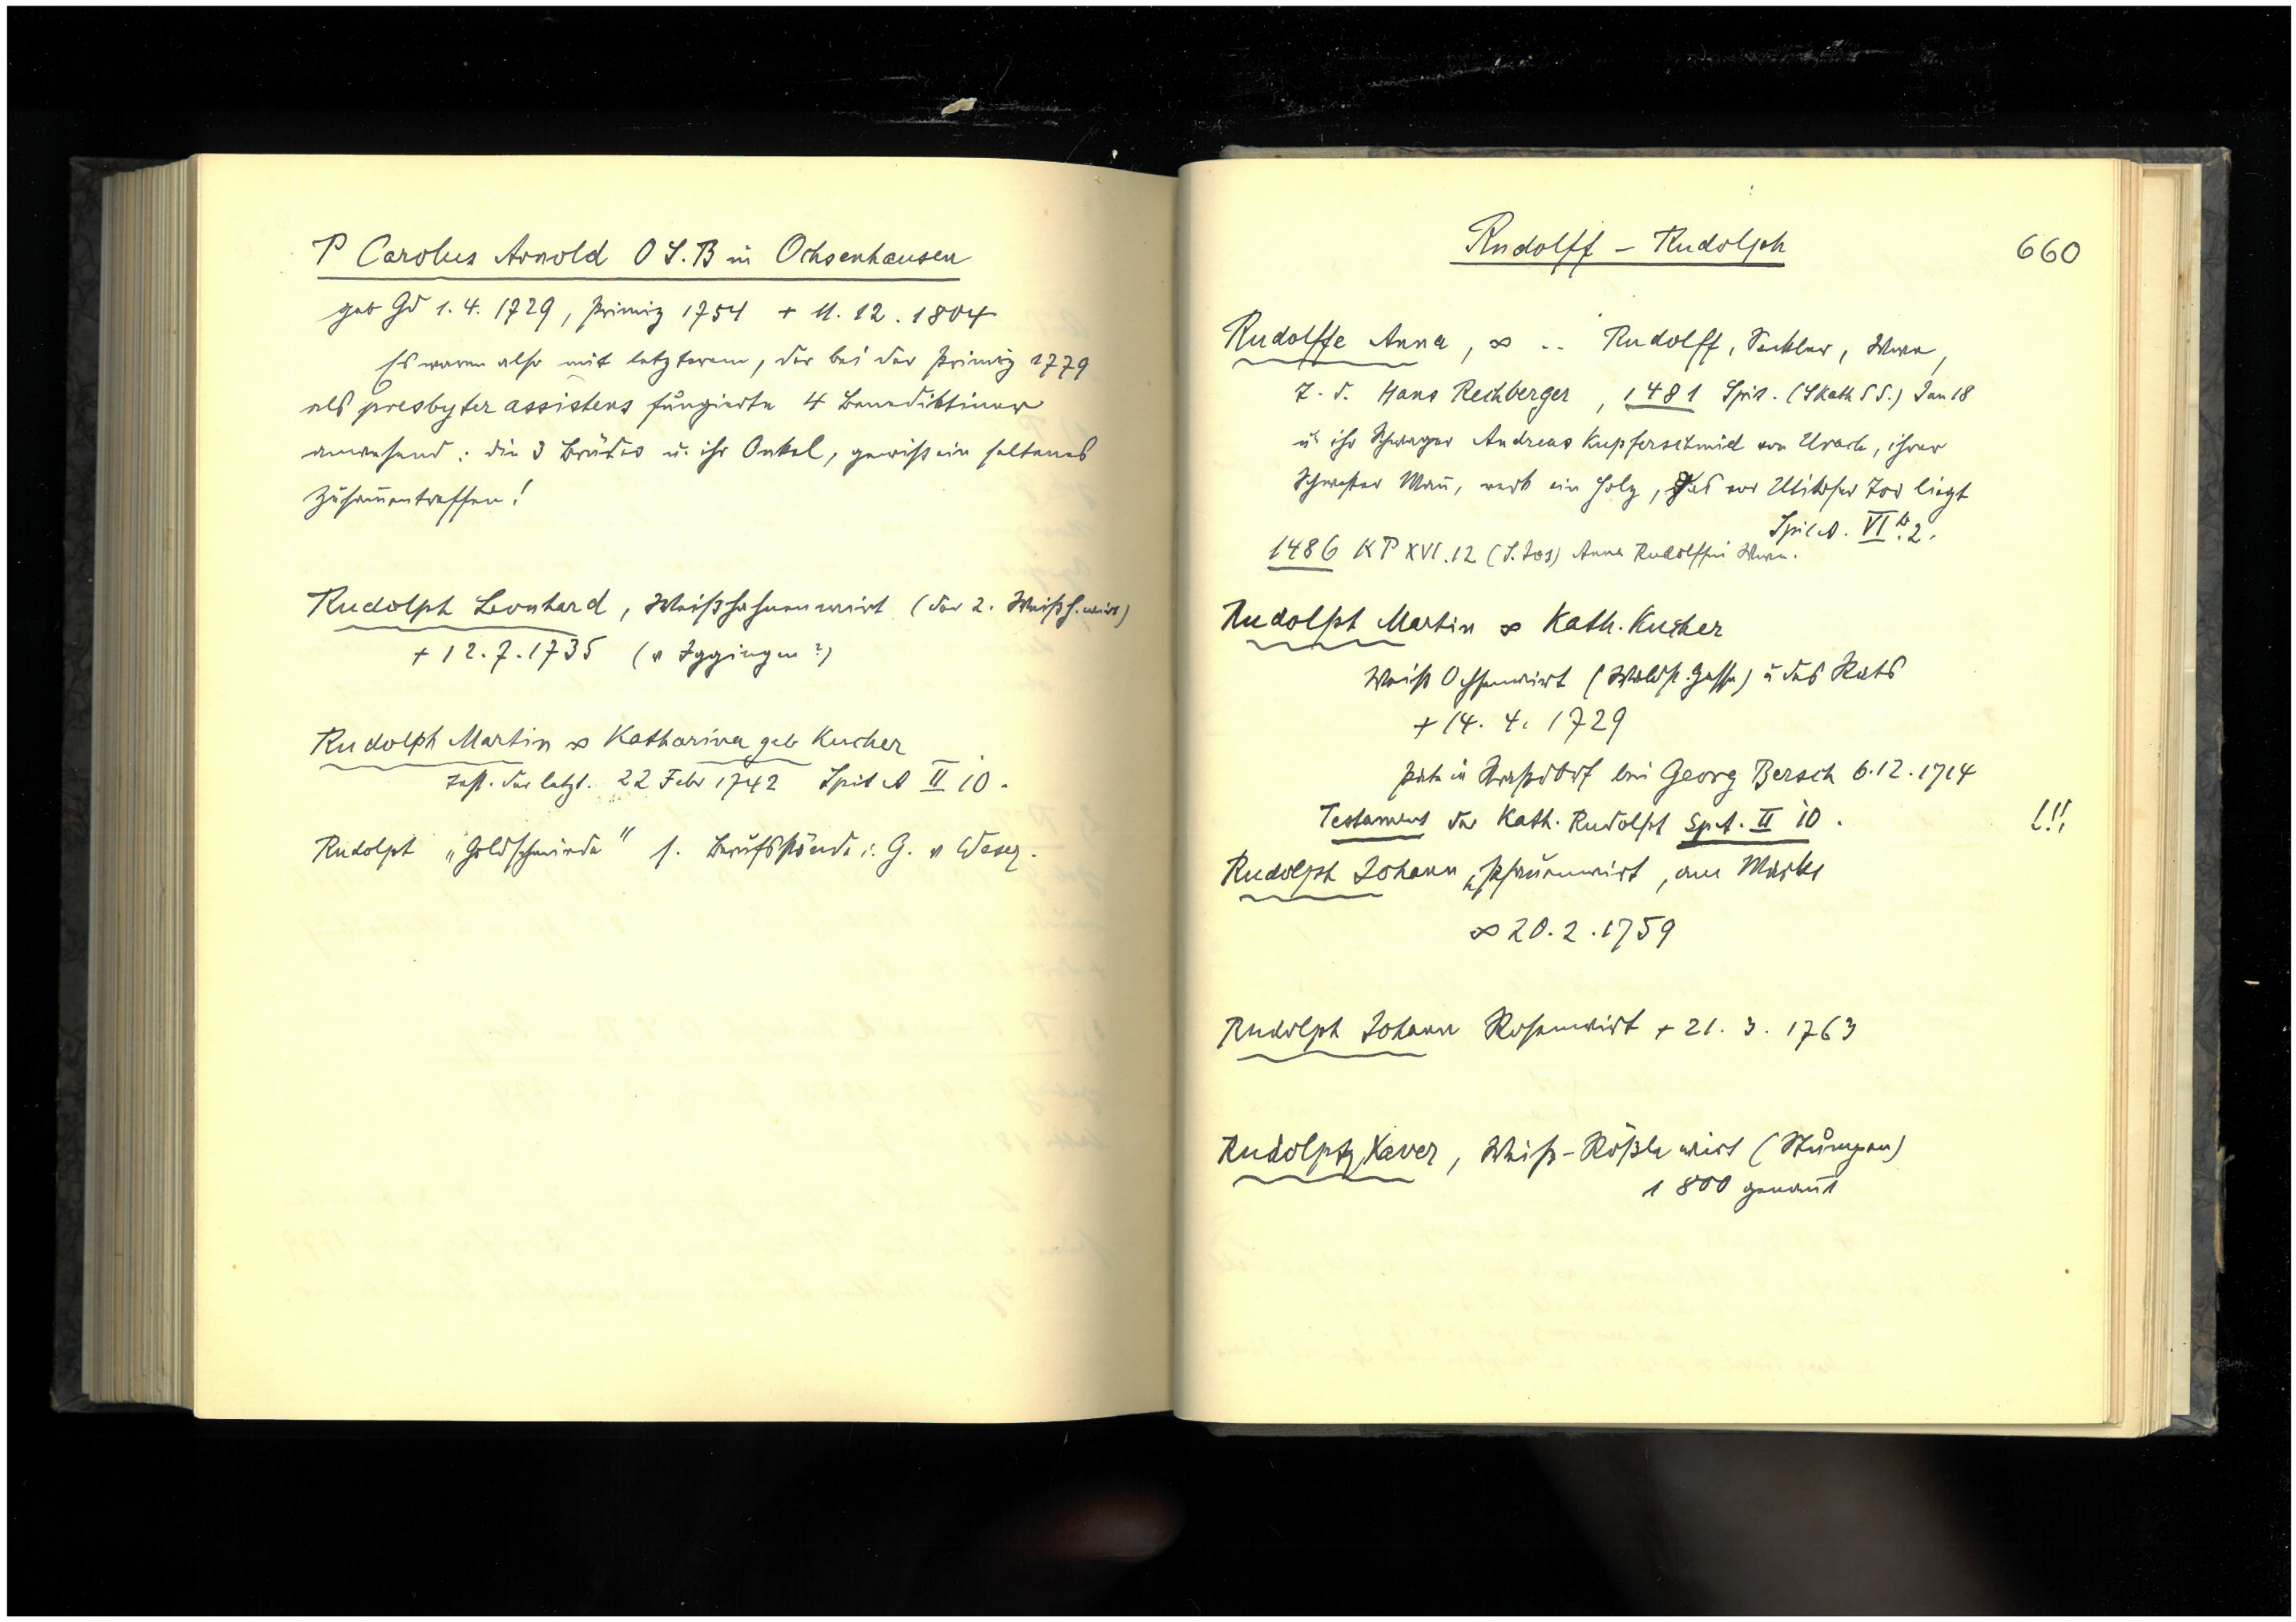 P Carolus Arnold O S. B in Ochsenhausen
geb Gd 1. 4. 1729, Primiz 1754 + 11. 12. 1804
Es waren also mit letzterem, der bei der Primiz 1779
als presbyter assistens fungierte 4 Benediktiner
anwesend: die 3 Brüder u. ihr Onkel, gewiß ein seltenes
Zusam̄entreffen!
Rudolph Leonhard, Weißhahnenwirt (der 2. Weißh.wirt)
+ 12. 7. 1735 (v Iggingen?)
Rudolph Martin ∞ Katharina geb Kucher
Test. der letzt. 22 Febr 1742 Spit A II 10.
Rudolph „Goldschmiede" s. Berufsstände i. G. v Weser.
Rudolff – Rudolph
660
Rudolffe Anna, ∞ .. Rudolff, Seckler, Wwe,
T. d. Hans Rechberger, 1481 Spit. (S Kath S S.) Jan 18
u ihr Schwager Andreas Kupferschmid von Urach, ihrer
Schwester Man̄, verk ein Holz, das vor Tor liegt
Spit A. VI b. 2.
1486 KP XVI. 12 (S. Jos) Anna Rudolffin Wwe.
Rudolph Martin ∞ Kath. Kucher
Weiß Ochsenwirt (Waldst. Gasse) u des Rats
+ 14. 4. 1729
Pate in Straßdorf bei Georg Bersch 6. 12. 1714
Testament der Kath. Rudolph Sp. A. II 10.
!!!
Rudolph Johann, Pfauenwirt, am Markt
∞ 20. 2. 1759
Rudolph Johann Rosenwirt + 21. 3. 1763
Rudolph, Xaver, Weiß-Rößle wirt (Stumpen)
1800 genan̄t